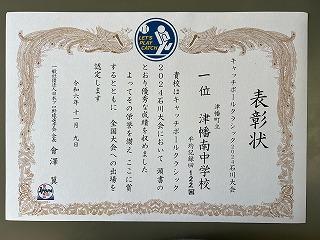 LET'S
PLAY
CATCH
表彰状
キャッチボールクラシック2024石川大会
一位 津幡町立 津幡南中学校
平均記録 122回
貴校はキャッチボールクラシック
2024石川大会において 頭書の
とおり優秀な成績を収めました
よってその栄誉を讃え ここに賞
するとともに 全国大会への出場を
認定します
令和六年十一月九日
一般社団法人日本プロ野球選手会会長 會澤 翼